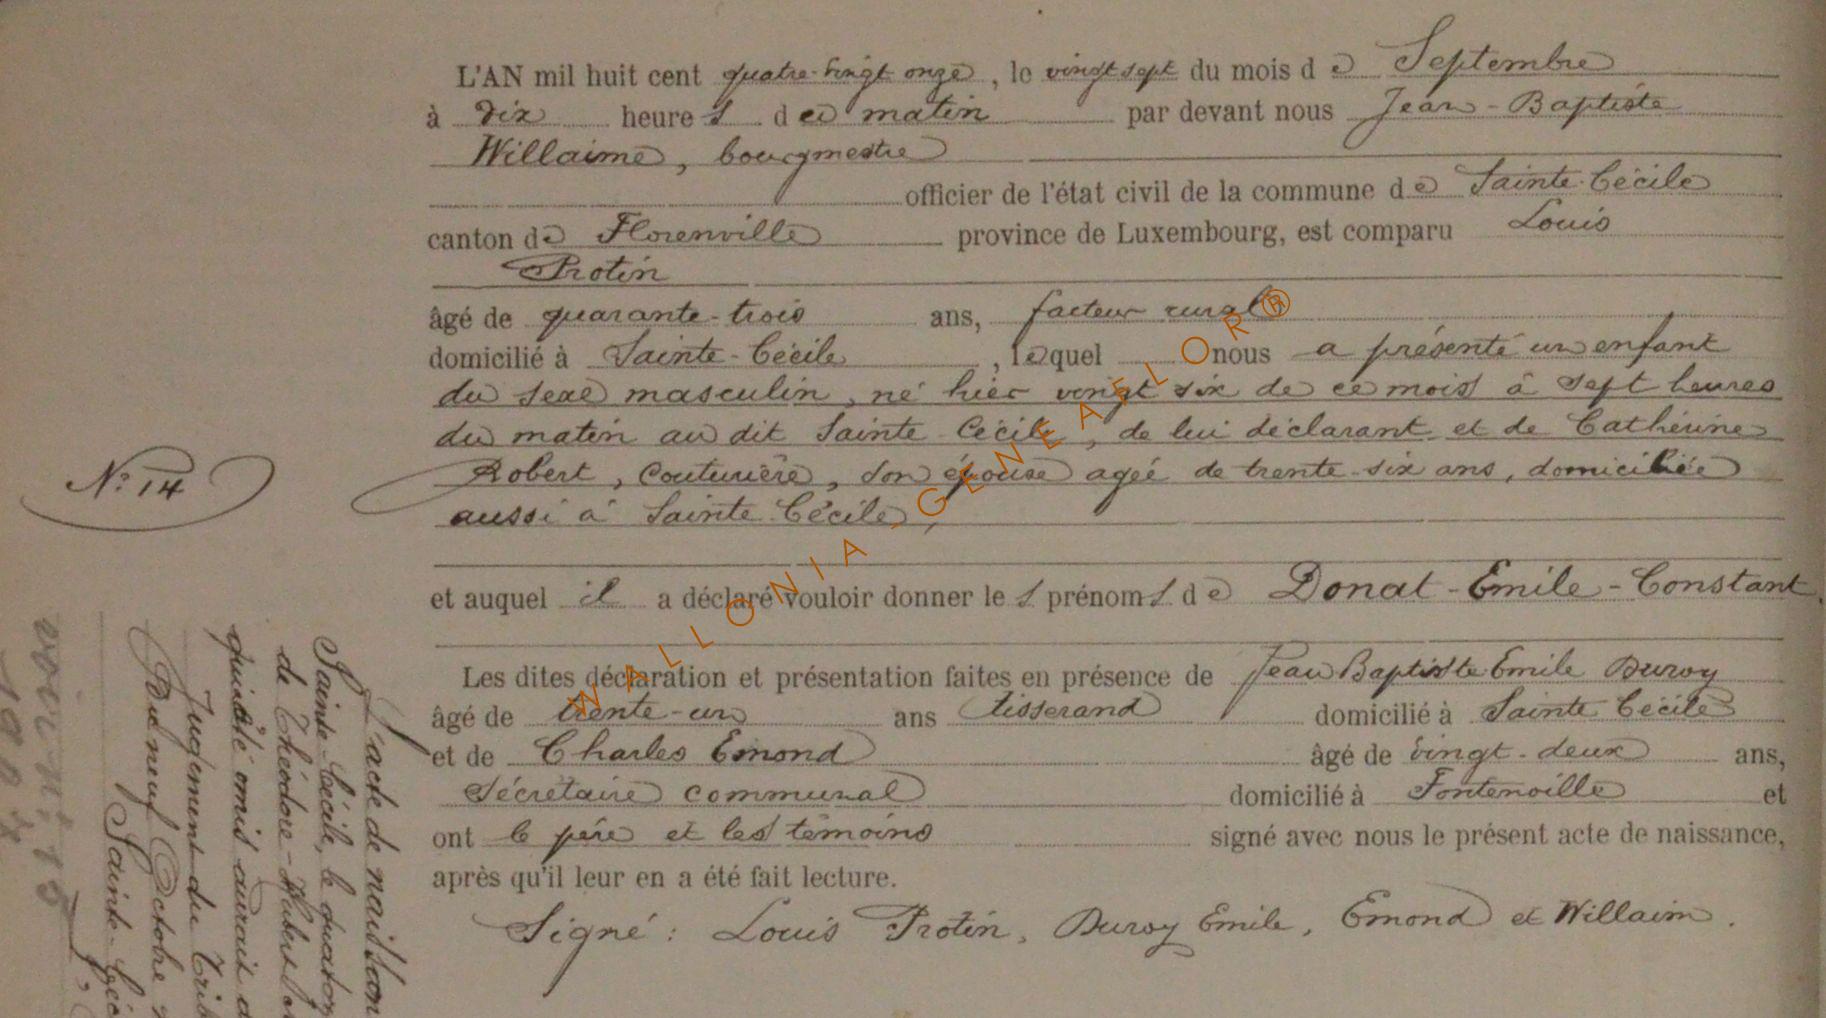 L'AN mil huit cent quatre-vingt onze, le vingt sept du mois de Septembre
à dix heures du matin par devant nous Jean-Baptiste
Willaime, bourgmestre
officier de l'état civil de la commune de Sainte-Cécile
canton de Florenville province de Luxembourg, est comparu Louis
Protin
âgé de quarante-trois ans, facteur rural
domicilié à Sainte-Cécile, lequel nous a présenté un enfant
du sexe masculin, né hier vingt six de ce mois à sept heures
du matin au dit Sainte Cécile, de lui déclarant et de Cathérine
N° 14
Robert, couturière, son épouse agée de trente-six ans, domiciliée
aussi à Sainte Cécile,
et auquel il a déclaré vouloir donner les prénoms de Donat-Emile-Constant.
Les dites déclaration et présentation faites en présence de Jean Baptiste Emile Duroy
âgé de trente-un ans tisserand domicilié à Sainte Cécile
et de Charles Emond âgé de vingt-deux ans,
Sécrétaire communal domicilié à Fontenoille et
ont le père et les témoins signé avec nous le présent acte de naissance,
après qu'il leur en a été fait lecture.
Signé : Louis Protin, Duroy Emile, Emond et Willaim.
L'acte de naissan
Sainte-Cécile, le quator
de Théodore-Hubert
omis aurait d
Jugement du Trib
neuf Octobre
Sainte-Céc
WALLONIA-GENEAFLOR®